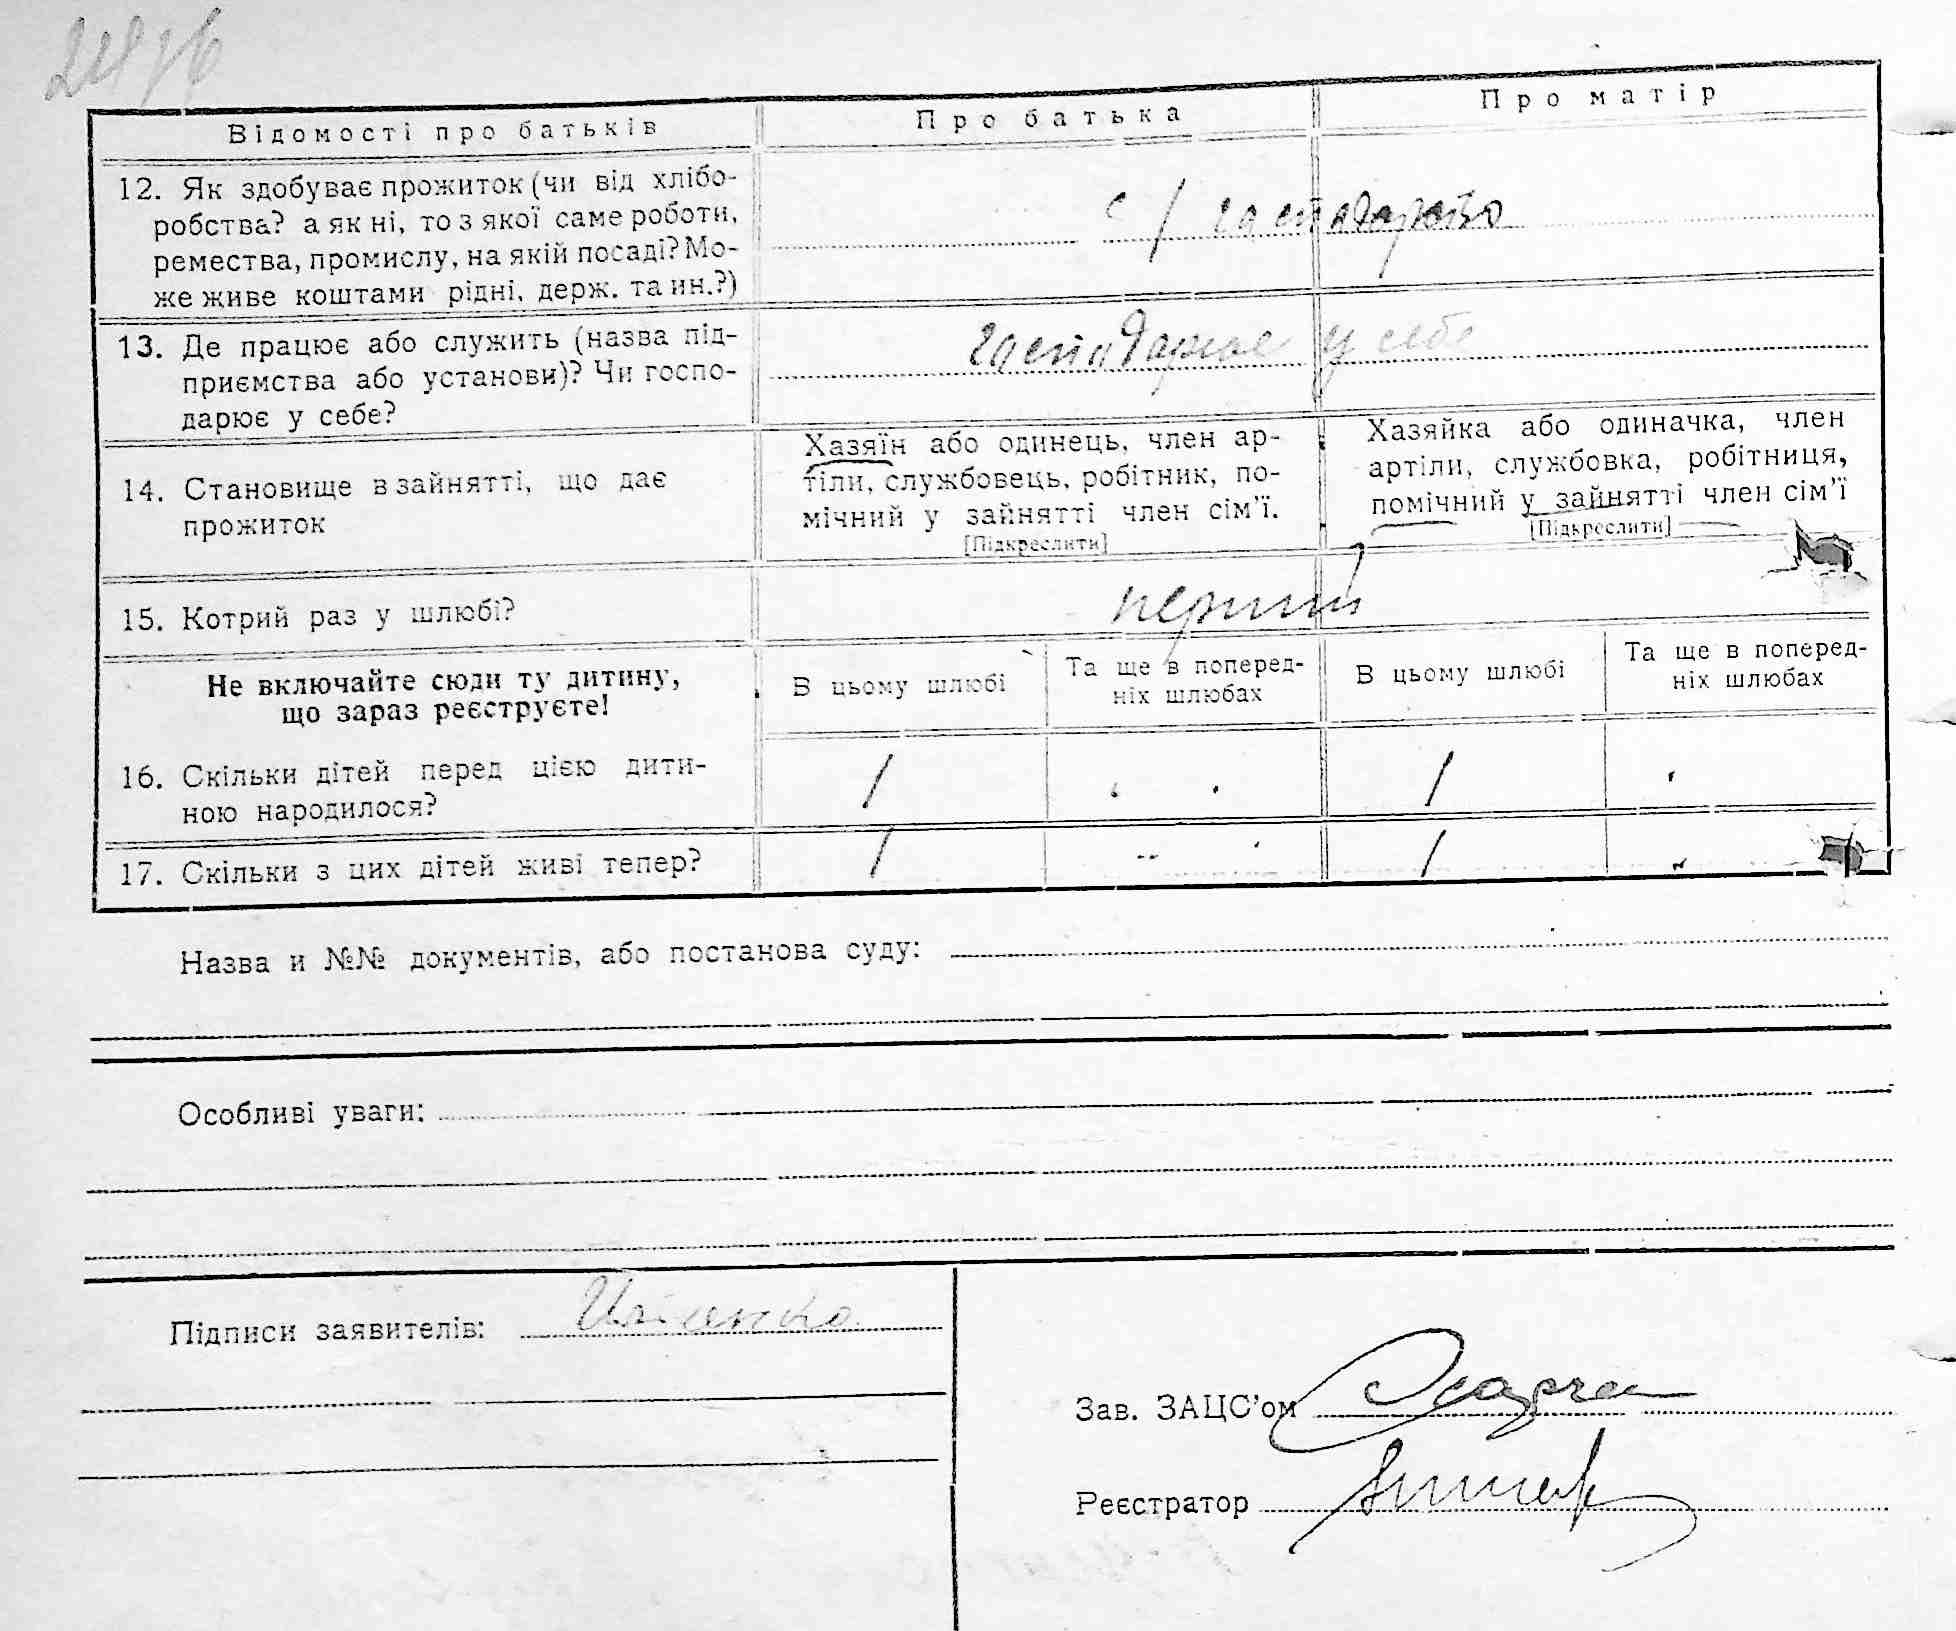 Відомості про батьків
Про батька
Про матір
12. Як здобуває прожиток (чи від хлібо-
робства? а як ні, то з якої саме роботи,
ремества, промислу, на якій посаді? Мо-
же живе коштами рідні, держ. та ин.?)
с/господарство
13. Де працює або служить (назва під-
приємства або установи)? Чи госпо-
дарює у себе?
господарює у себе
14. Становище в зайнятті, що дає
прожиток
Хазяїн або одинець, член ар-
тіли, службовець, робітник, по-
мічний у зайнятті член сім'ї.
[Підкреслити]
Хазяйка або одиначка, член
артіли, службовка, робітниця,
помічний у зайнятті член сім'ї
[Підкреслити]
15. Котрий раз у шлюбі?
перший
Не включайте сюди ту дитину,
що зараз реєструєте!
В цьому шлюбі
Та ще в поперед-
ніх шлюбах
В цьому шлюбі
Та ще в поперед-
ніх шлюбах
16. Скільки дітей перед цією дити-
ною народилося?
1
1
17. Скільки з цих дітей живі тепер?
1
1
Назва и №№ документів, або постанова суду:
Особливі уваги:
Підписи заявителів:
Зав. ЗАЦС'ом
Реєстратор